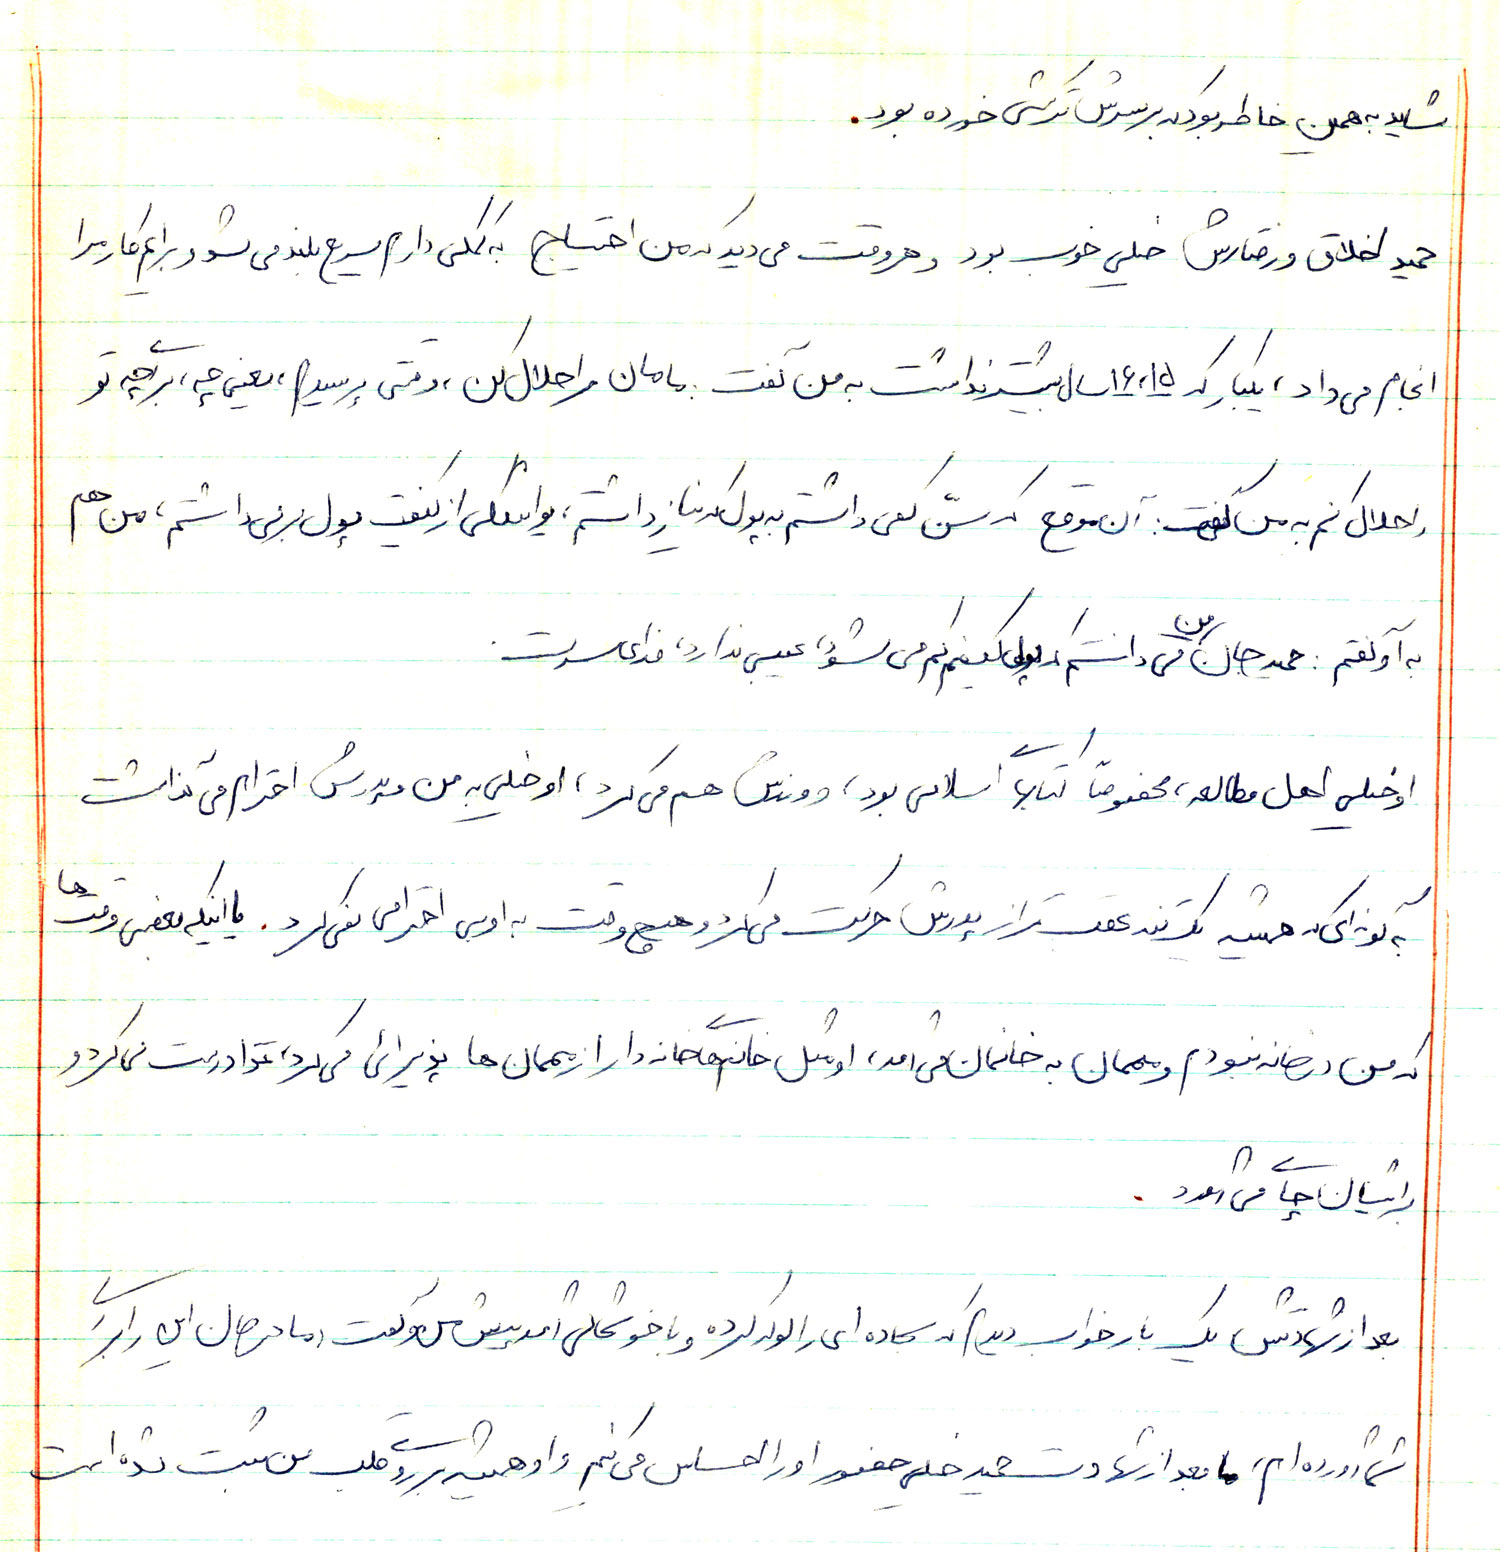 شاید به همین خاطر بود که بر سرش ترکش خورده بود.
حمید اخلاق و رفتارش خیلی خوب بود و هر وقت می دید که من احتیاج به کمکی دارم سریع بلند می شد و برایم کار مرا
انجام می داد، یکبار که ۱۵، ۱۶ سال بیشتر نداشت به من گفت: مامان مرا حلال کن، وقتی پرسیدم، یعنی چه، برای چه تو
را حلال کنم به من گفت: آن موقع که سن کمی داشتم به پول که نیاز داشتم، یواشکی از کیفت پول برمی داشتم، من هم
به او گفتم: حمید جان من می دانستم که پول کیفم کم می شود، عیبی ندارد، فدای سرت.
او خیلی اهل مطالعه، مخصوصاً کتابهای اسلامی بود، ورزش هم می کرد، او خیلی به من و پدرش احترام می گذاشت
به گونه ای که همیشه یک قدم عقب تر از پدرش حرکت می کرد و هیچ وقت به او بی احترامی نمی کرد. با اینکه بعضی وقت ها
که من در خانه نبودم و مهمان به خانمان می آمد، او مثل خانم های خانه دار از مهمان ها پذیرائی می کرد، غذا درست می کرد و
برایشان چای می آورد.
بعد از شهادتش یک بار خواب دیدم که سجاده ای را لوله کرده و با خوشحالی آمد پیش من و گفت، مادر جان این را برای
شما آورده ام، ما بعد از شهادت حمید خیلی حضور او را احساس می کنیم و او همیشه بر روی قلب من ثبت شده است